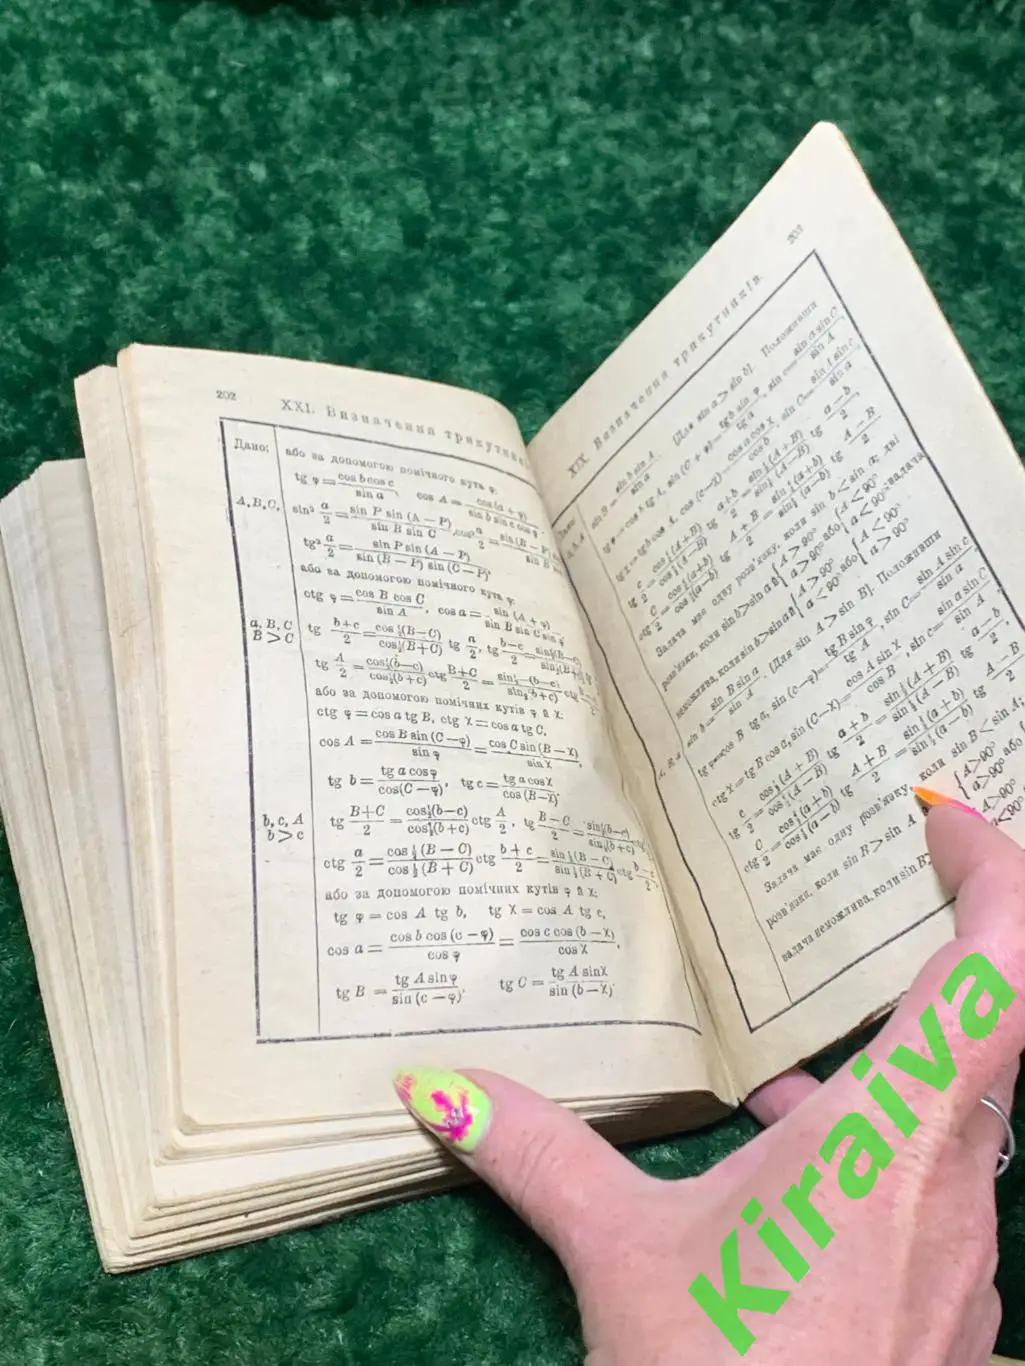 202
XXI. Визначення трикутник
Дано:
або за допомогою помічного кута φ:
tg φ = cos b cos c / sin a, cos A = cos (a + φ) / sin b sin c cos φ
A, B, C,
sin² a/2 = sin P sin (A — P) / sin B sin C, cos² a/2 = sin (B — P) / sin B
tg² a/2 = sin P sin (A — P) / sin (B — P) sin (C — P),
або за допомогою помічного кута φ:
ctg φ = cos B cos C / sin A, cos a = sin (A + φ) / sin B sin C sin φ
a, B, C
B > C
tg b+c/2 = cos½(B—C) / cos½(B+C) tg a/2, tg b—c/2 = sin½(B—C) / sin½(B+
tg A/2 = cos½(b—c) / cos½(b+c) ctg B+C/2 = sin½(b—c) / sin½(b+c) ctg
або за допомогою помічних кутів φ й χ:
ctg φ = cos a tg B, ctg χ = cos a tg C,
cos A = cos B sin (C — φ) / sin φ = cos C sin (B — χ) / sin χ,
tg b = tg a cos φ / cos(C — φ), tg c = tg a cos χ / cos (B—χ)
b, c, A
b > c
tg B+C/2 = cos½(b—c) / cos½(b+c) ctg A/2, tg B—C/2 = sin½(b—c) / sin½(b+c)
ctg a/2 = cos ½ (B — C) / cos ½ (B + C) ctg b + c/2 = sin ½ (B — C) / sin ½ (B + C) ctg b—c/2,
або за допомогою помічних кутів φ й χ:
tg φ = cos A tg b, tg χ = cos A tg c,
cos a = cos b cos (c — φ) / cos φ = cos c cos (b — χ) / cos χ,
tg B = tg A sin φ / sin (c — φ), tg C = tg A sin χ / sin (b — χ)
203
XIX. Визначення трикутників.
Дано:
sin B = sin b sin A / sin a. [Для sin a > sin b]. Положивши
tg φ = cos b tg A, sin (C + φ) = tg b sin φ / tg a, sin c = sin a sin C / sin A
tg χ = tg b cos A, cos (c—χ) = cos a cos χ / cos b, sin C = sin A sin c / sin a
tg c/2 = cos½(A+B) / cos½(A—B) tg a+b/2 = sin½(A+B) / sin½(A—B) tg a—b/2
ctg C/2 = cos½(a+b) / cos½(a—b) tg A+B/2 = sin½(a+b) / sin½(a—b) tg A—B/2
Задача має одну розв'язку, коли sin b < sin a; дві
розв'язки, коли sin b > sin a й { A > 90° a > 90° або { A < 90° a < 90°; задача
неможлива, коли sin b > sin a й { A > 90° a < 90° або { A < 90° a > 90°
sin b = sin B sin a / sin A. [Для sin A > sin B]. Положивши
tg φ = cos B tg a, sin (c—φ) = tg B sin φ / tg A, sin C = sin A sin c / sin a
ctg χ = tg B cos a, sin (C—χ) = cos A sin χ / cos B, sin c = sin a sin C / sin A
tg c/2 = cos½(A+B) / cos½(A—B) tg a+b/2 = sin½(A+B) / sin½(A—B) tg a—b/2
ctg C/2 = cos½(a+b) / cos½(a—b) tg A+B/2 = sin½(a+b) / sin½(a—b) tg A—B/2
Задача має одну розв'язку, коли sin B < sin A;
розв'язки, коли sin B > sin A { A > 90° a > 90° або
задача неможлива, коли sin B > A > 90° a < 90°
Kiraiva